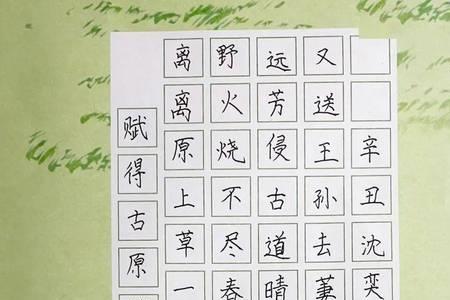 赋得古原
离离原上草一
野火烧不尽春
远芳侵古道晴
又送王孙去萋
辛丑沈奕